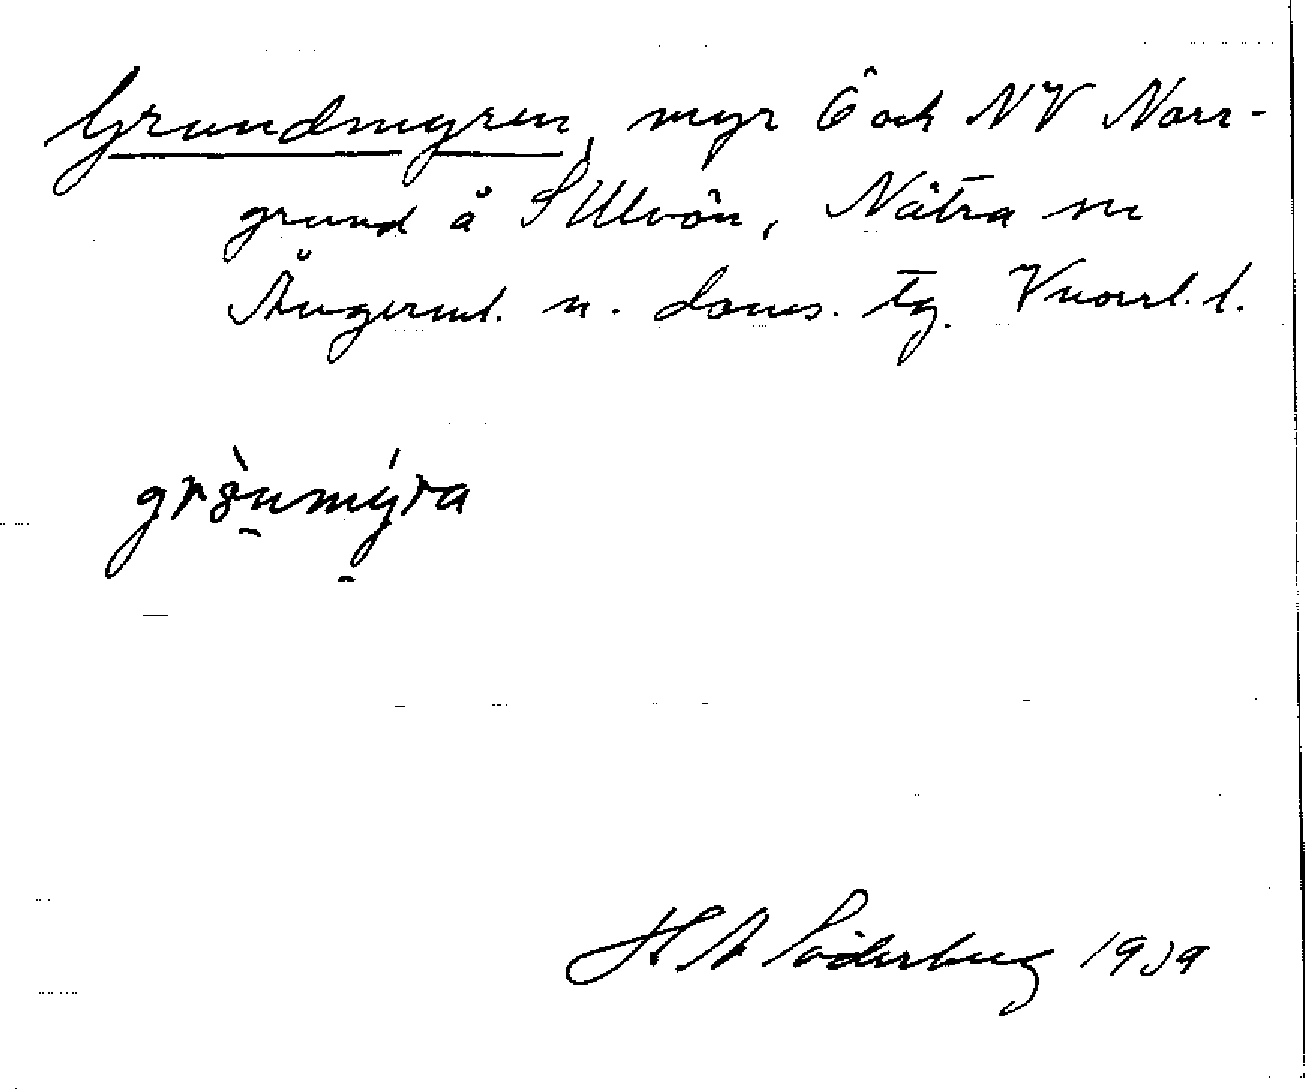 Grundmyren, myr Ö och NV Norr-
grund å S Ulvön, Nätra sn
Ångerml. n. doms. tg. Vnorrl. l.
grönmýra
H A Söderberg 1939